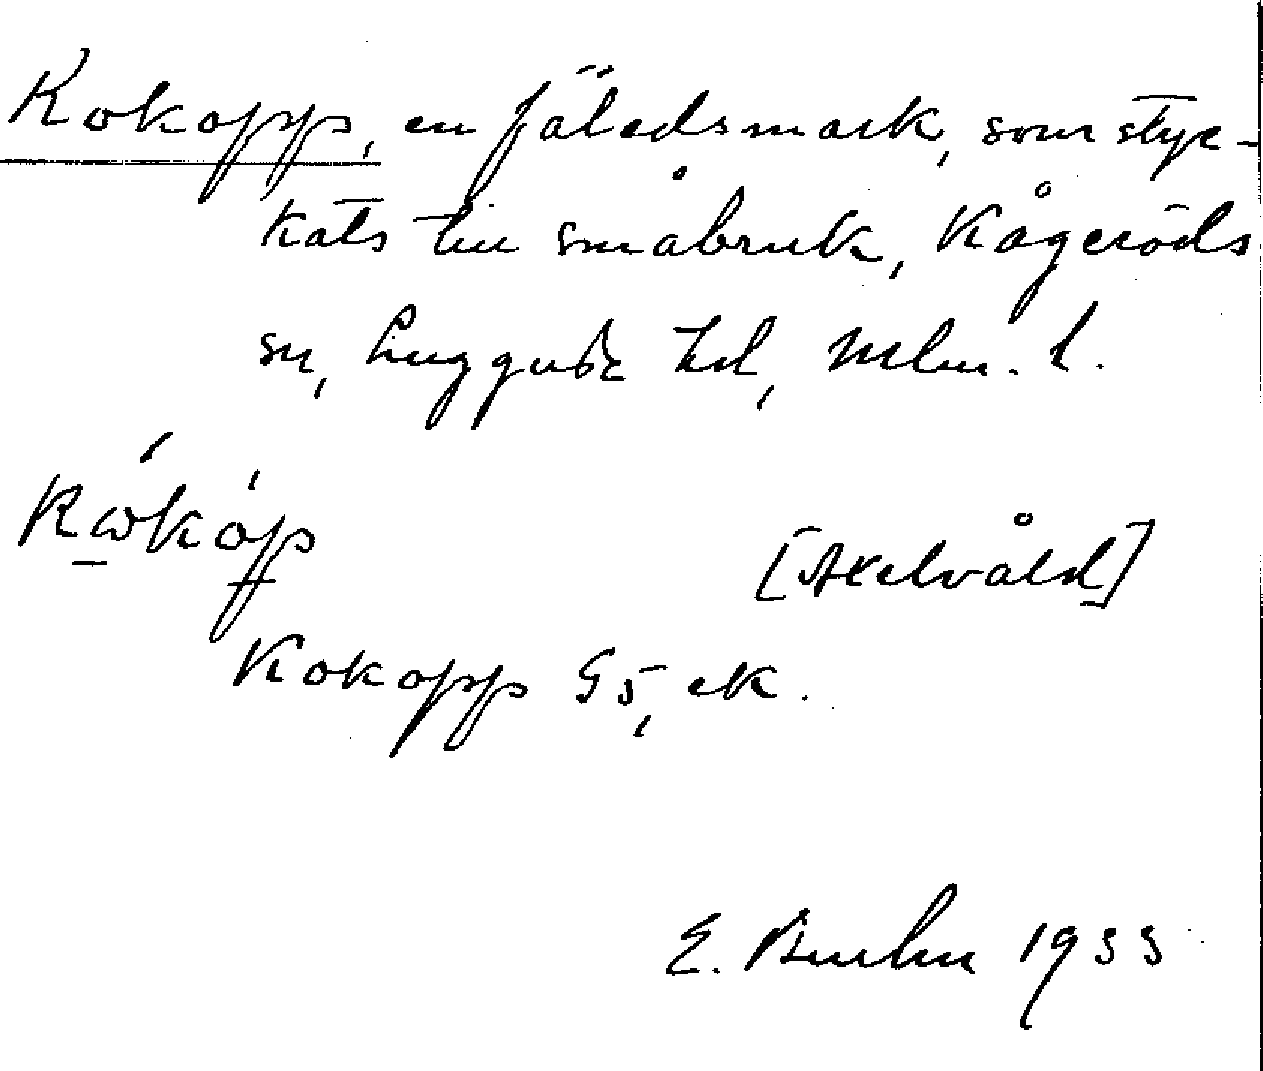 Kokopp, en fäledsmark, som styc-
kats till småbruk, Kågeröds
sn, Luggude hd, Mlm. l.
Kωkóp
[Axelvåld]
Kokopp G5, ek.
E. 1933